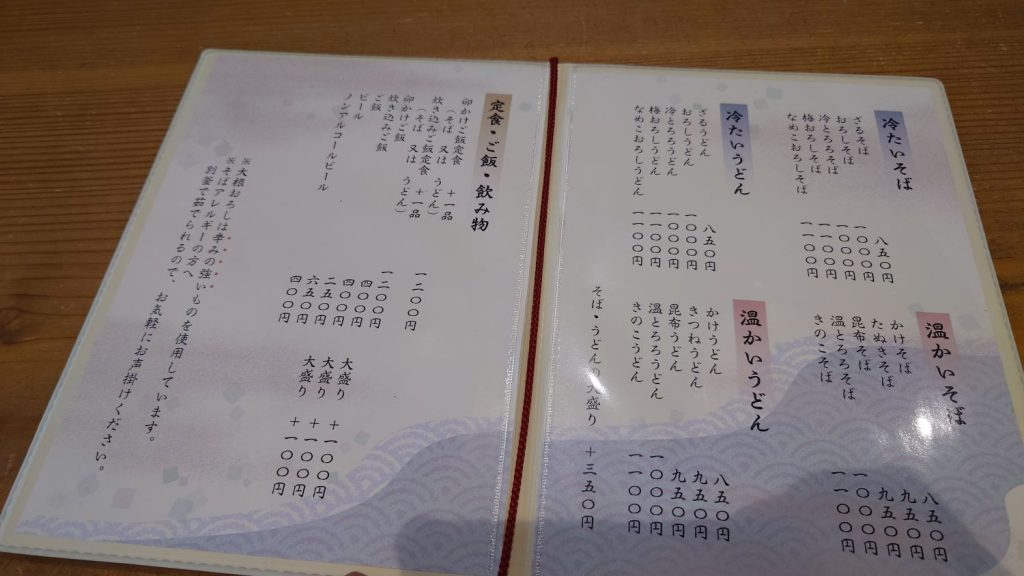 冷たいそば
ざるそば 八五〇円
おろしそば 一〇〇〇円
冷とろろそば 一〇〇〇円
梅おろしそば 一一〇〇円
なめこおろしそば 一一〇〇円
温かいそば
かけそば 八五〇円
たぬきそば 九五〇円
昆布そば 九五〇円
温とろろそば 一〇〇〇円
きのこそば 一一〇〇円
冷たいうどん
ざるうどん 八五〇円
おろしうどん 一〇〇〇円
冷とろろうどん 一〇〇〇円
梅おろしうどん 一一〇〇円
なめこおろしうどん 一一〇〇円
温かいうどん
かけうどん 八五〇円
きつねうどん 九五〇円
昆布うどん 九五〇円
温とろろうどん 一〇〇〇円
きのこうどん 一一〇〇円
そば・うどん大盛り ＋三五〇円
定食・ご飯・飲み物
卵かけご飯定食 ＋一品
（そば 又は うどん） 一二〇〇円
炊き込みご飯定食 ＋一品
（そば 又は うどん） 一二〇〇円
卵かけご飯 四〇〇円 大盛り ＋一〇〇円
炊き込みご飯 四〇〇円 大盛り ＋一〇〇円
ご飯 二五〇円 大盛り ＋一〇〇円
ビール 六五〇円
ノンアルコールビール 四〇〇円
※大根おろしは辛みの強いものを使用しています。
※そばアレルギーの方へ
別釜で茹でられるので、お気軽にお声掛けください。